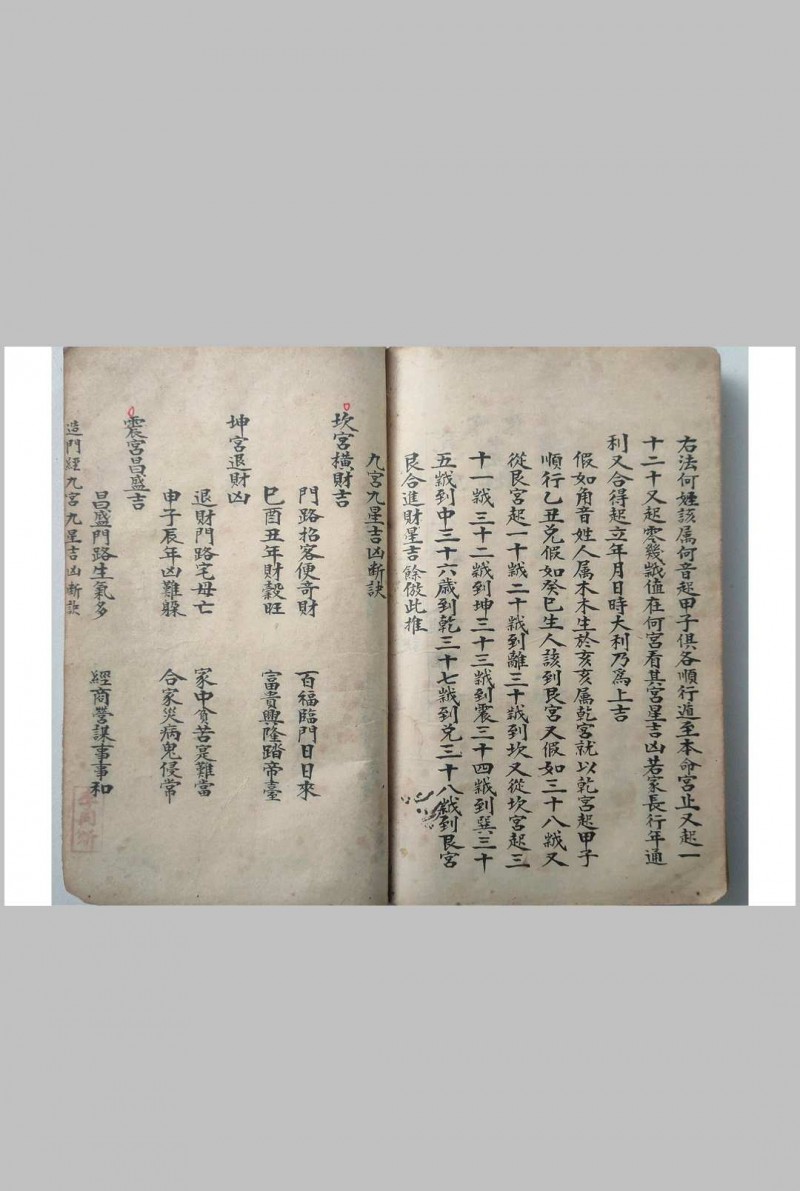 右法何姓該属何音起甲子俱各順行遁至本命宮止又起一
十二十又起零幾歲值在何宮看其宮星吉凶若家長行年通
利又合得起立年月日時大利乃為上吉
假如角音姓人属木木生於亥亥属乾宮就以乾宮起甲子
順行乙丑兌假如癸巳生人該到艮宮又假如三十八歲又
從艮宮起一十歲二十歲到離三十歲到坎又從坎宮起三
十一歲三十二歲到坤三十三歲到震三十四歲到巽三十
五歲到中三十六歲到乾三十七歲到兌三十八歲到艮宮
艮合進財星吉餘倣此推
九宮九星吉凶断訣
坎宮橫財吉
門路招客便奇財 百福臨門日日來
巳酉丑年財穀旺 富貴興隆踏帝臺
坤宮退財凶
退財門路宅母亡 家中貧苦寔難當
申子辰年凶難躲 合家災病鬼侵常
震宮昌盛吉
昌盛門路生氣多 經商營謀事事和
造門經九宮九星吉凶断訣